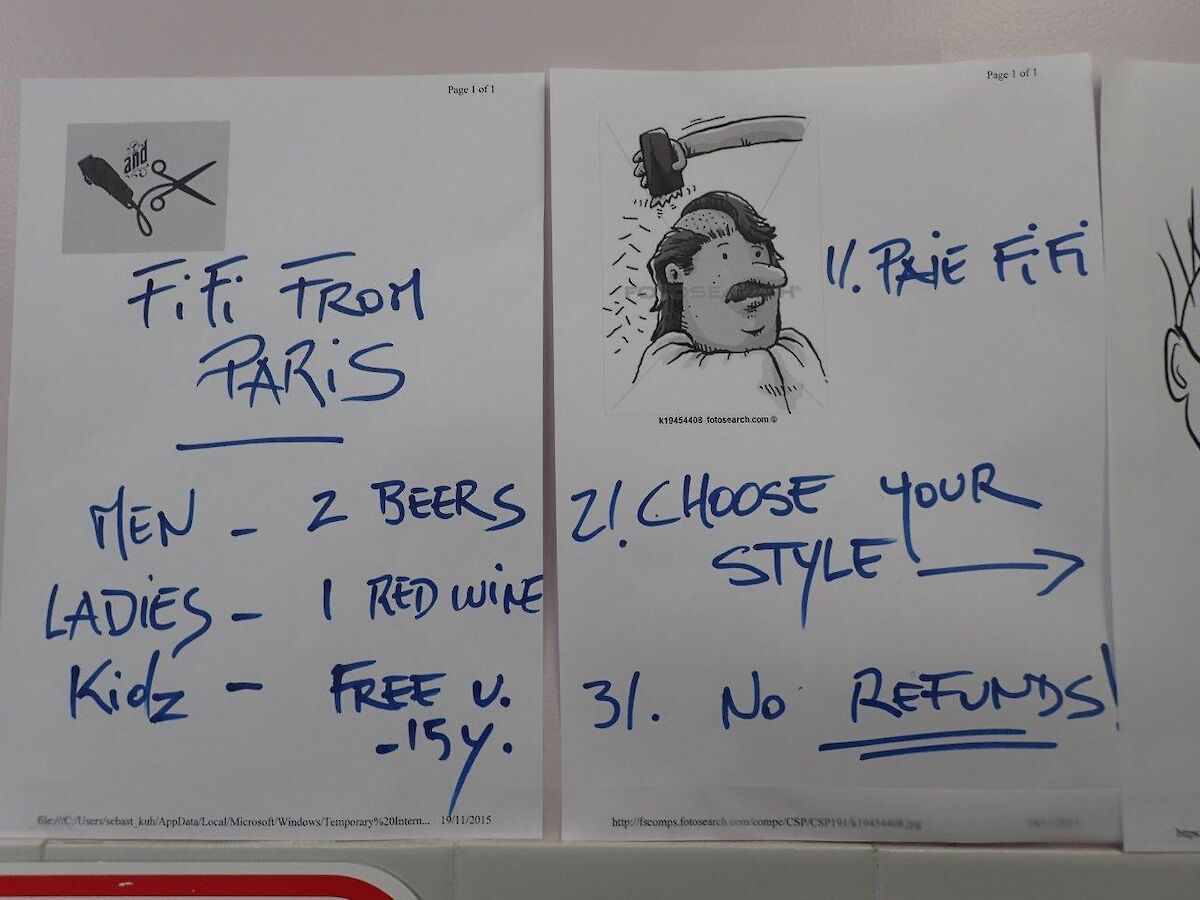 Page 1 of 1
and
FiFi FROM
PARiS
MEN - 2 BEERS
LADiES - 1 RED WiNE
Kidz - FREE U.
-15y.
file:///C:/Users/sebast_kuh/AppData/Local/Microsoft/Windows/Temporary%20Intern... 19/11/2015
Page 1 of 1
FOTOSEARCH®
k19454408 fotosearch.com ©
1/. PAiE FiFi
2/. CHOOSE YOUR
STYLE →
3/. No REFUNDS!
http://fscomps.fotosearch.com/compc/CSP/CSP191/k19454408.jpg 19/11/2015